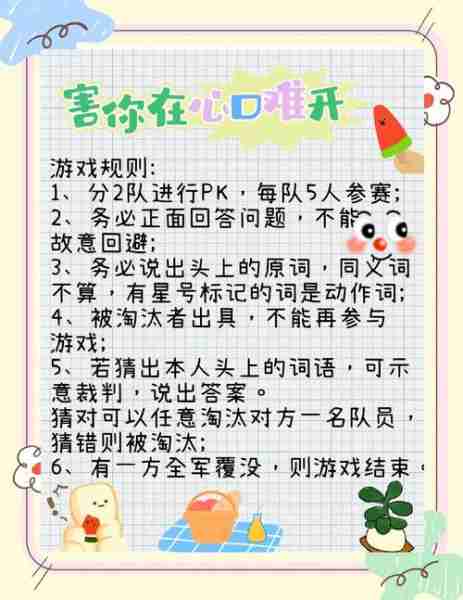 害你在心口难开
游戏规则:
1、分2队进行PK，每队5人参赛;
2、务必正面回答问题，不能
故意回避;
3、务必说出头上的原词，同义词
不算，有星号标记的词是动作词;
4、被淘汰者出具，不能再参与
游戏;
5、若猜出本人头上的词语，可示
意裁判，说出答案。
猜对可以任意淘汰对方一名队员，
猜错则被淘汰;
6、有一方全军覆没，则游戏结束。